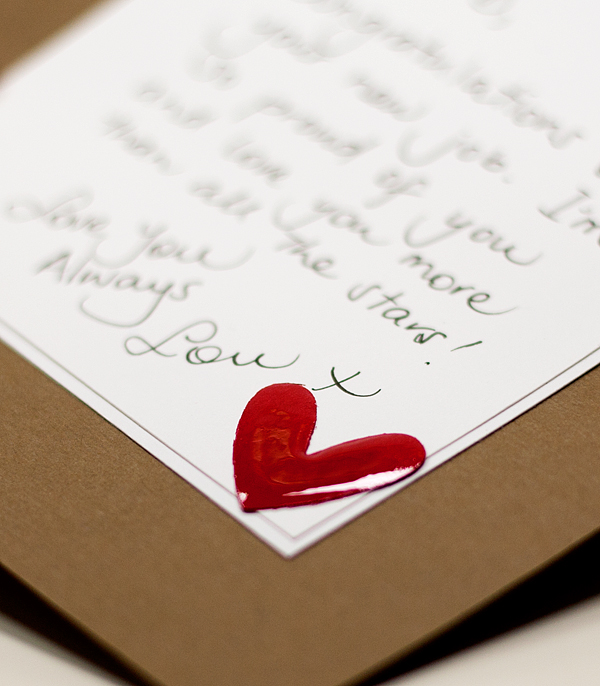 Congratulations
your new job. I'm
so proud of you
and love you more
than all the stars!
Love you
Always
Lou x